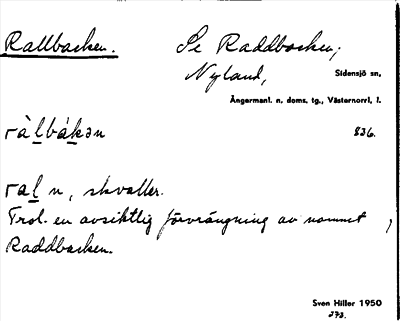 Rallbacken. Se Raddbacken,
Nyland, Sidensjö sn,
Ångermanl. n. doms. tg., Västernorrl. l.
ràlbákən 836.
ral n, skvaller.
Trol. en avsiktlig förvrängning av namnet
Raddbacken.
Sven Hiller 1950
273.